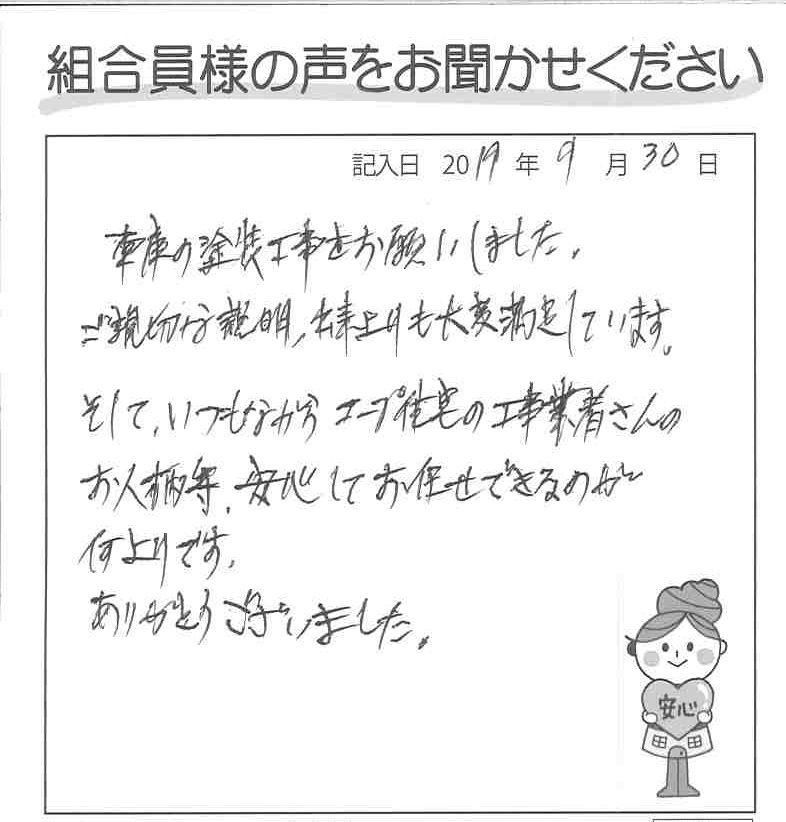 組合員様の声をお聞かせください
記入日 2019年9月30日
車庫の塗装工事をお願いしました。
ご親切な説明、出来上りも大変満足しています。
そして、いつもながらコープ住宅の工事業者さんの
お人柄等、安心してお任せできるのが
何よりです。
ありがとうございました。
安心